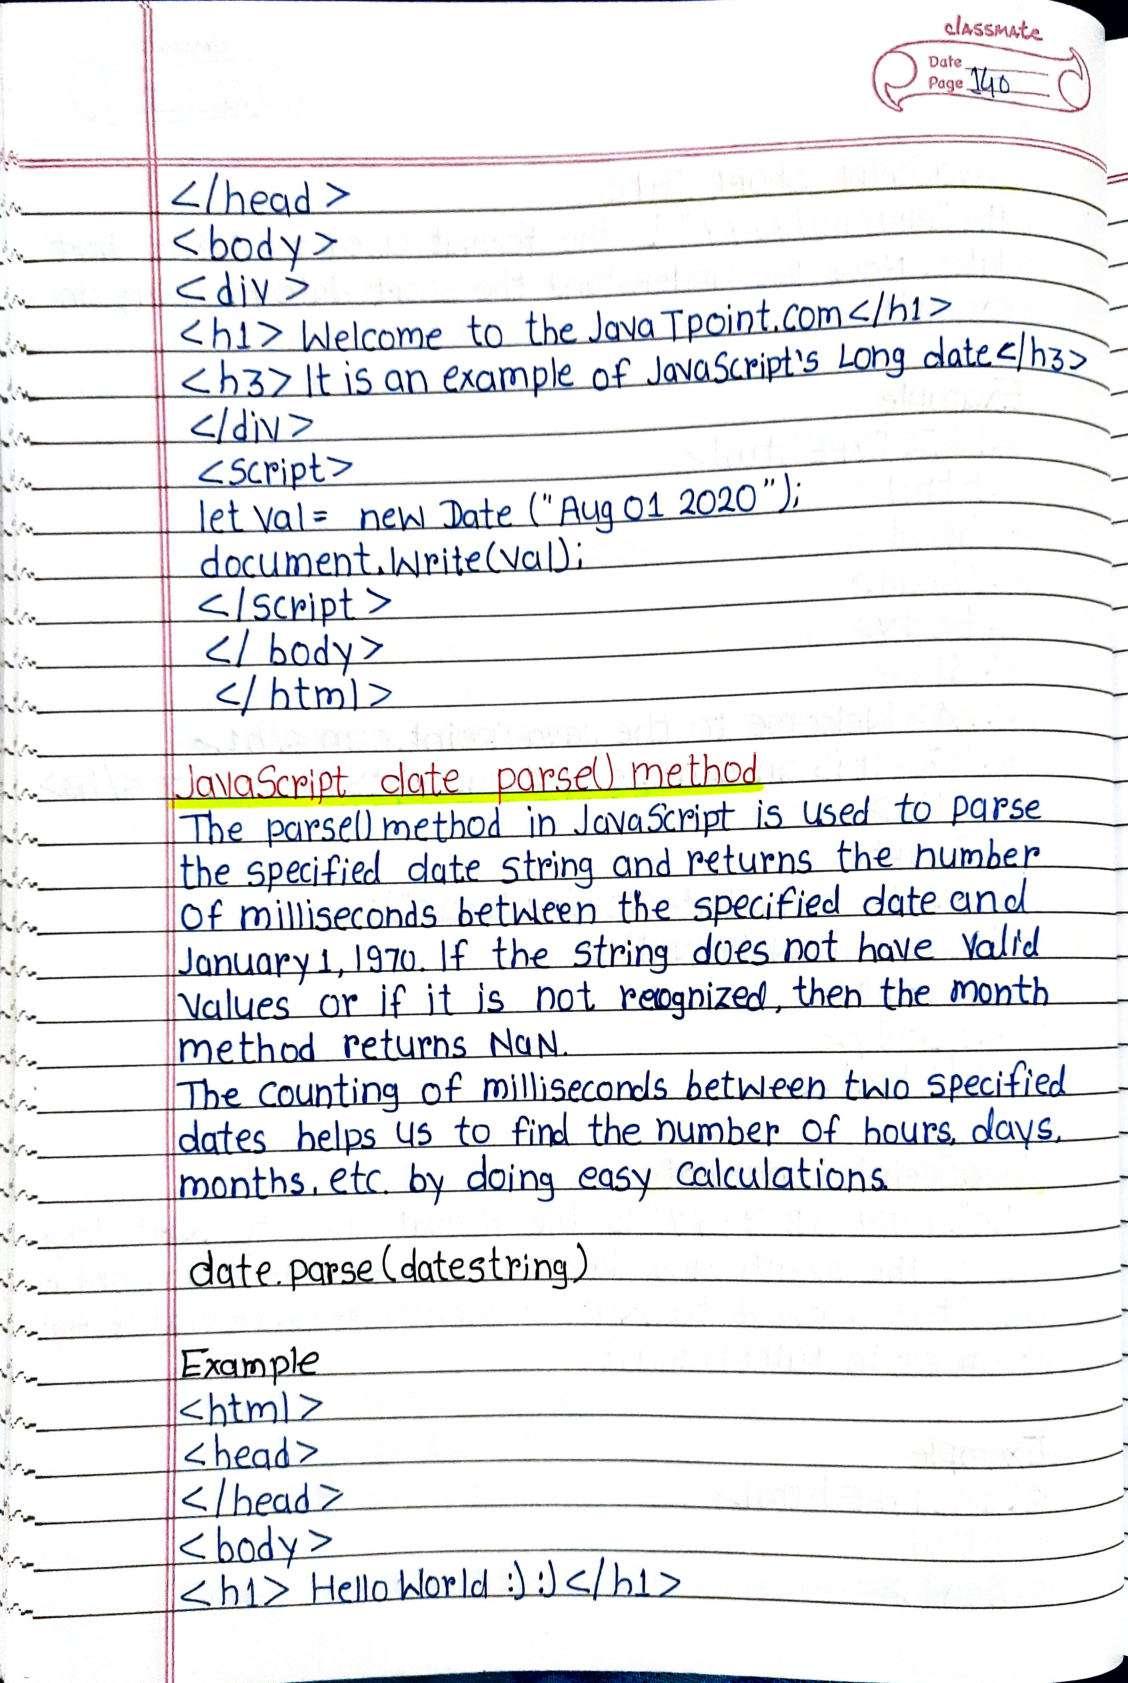 classmate
Date
Page 140
</head>
<body>
<div>
<h1> Welcome to the JavaTpoint.com</h1>
<h3> It is an example of JavaScript's Long date</h3>
</div>
<script>
let val = new Date ("Aug 01 2020");
document.write(val);
</script>
</body>
</html>
JavaScript date parse() method
The parse() method in JavaScript is used to parse
the specified date string and returns the number
of milliseconds between the specified date and
January 1, 1970. If the string does not have valid
values or if it is not recognized, then the month
method returns NaN.
The counting of milliseconds between two specified
dates helps us to find the number of hours, days,
months, etc. by doing easy calculations.
date.parse(datestring)
Example
<html>
<head>
</head>
<body>
<h1> Hello World :) :)</h1>